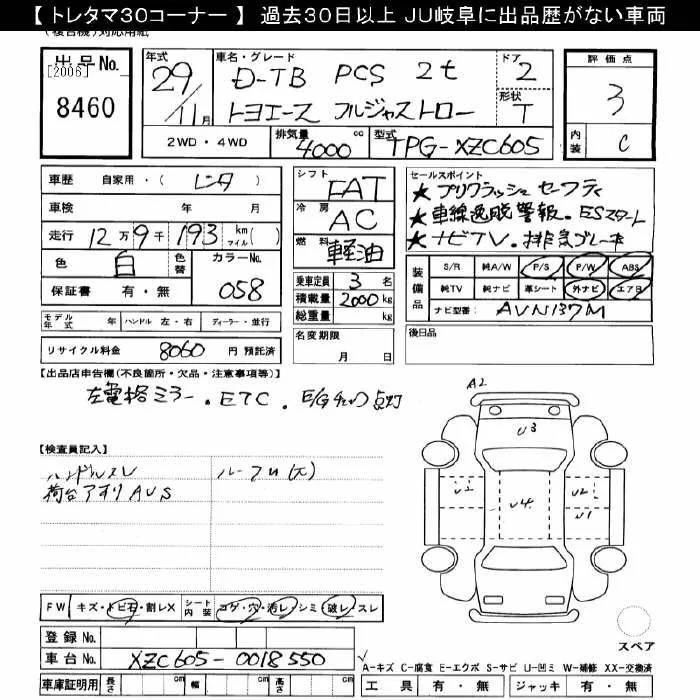 【 トレタマ３０コーナー 】 過去３０日以上 ＪＵ岐阜に出品歴がない車両
(複合機)対応用紙
出品No. [2006] 8460
年式 29/11月
車名・グレード D-TB PCS 2t
トヨエース フルジャストロー
ドア 2
形状 T
評価点 3
内装 C
2WD ・ 4WD
排気量 4000 cc
型式 TPG-XZC605
車歴 自家用・( レンタ )
車検 年 月
走行 12万9千193 km マイル( )
色 白 色替 カラーNo. 058
保証書 有・無
シフト FAT
冷房 AC
燃料 軽油
乗車定員 3 名
積載量 2000 kg
総重量 kg
セールスポイント
★プリクラッシュセーフティ
★車線逸脱警報．ESスタート
★ナビTV．排気ブレーキ
装備品 S/R 純A/W P/S P/W ABS
純TV 純ナビ 革シート 外ナビ エアB
ナビ型番: AVN137M
モデル年式 年 ハンドル 左・右 ディーラー・並行
名変期限 月 日
後日品
リサイクル料金 8060 円 預託済
【出品店申告欄(不良箇所・欠品・注意事項等)】
左電格ミラー．ETC．E/Gチェック点灯
A2
U3
U2 U4 U2
U1
【検査員記入】
ハンドルスレ ルーフU(大)
荷台アオリAUS
FW キズ・トビ石・割レX シート内装 コゲ・穴・汚レ・シミ・破レ・スレ
スペア
登録 No.
車台 No. XZC605-0018550
A-キズ C-腐食 E-エクボ S-サビ U-凹ミ W-補修 XX-交換済
車庫証明用 長さ cm 幅 cm 高さ cm
工具 有・無 ジャッキ 有・無